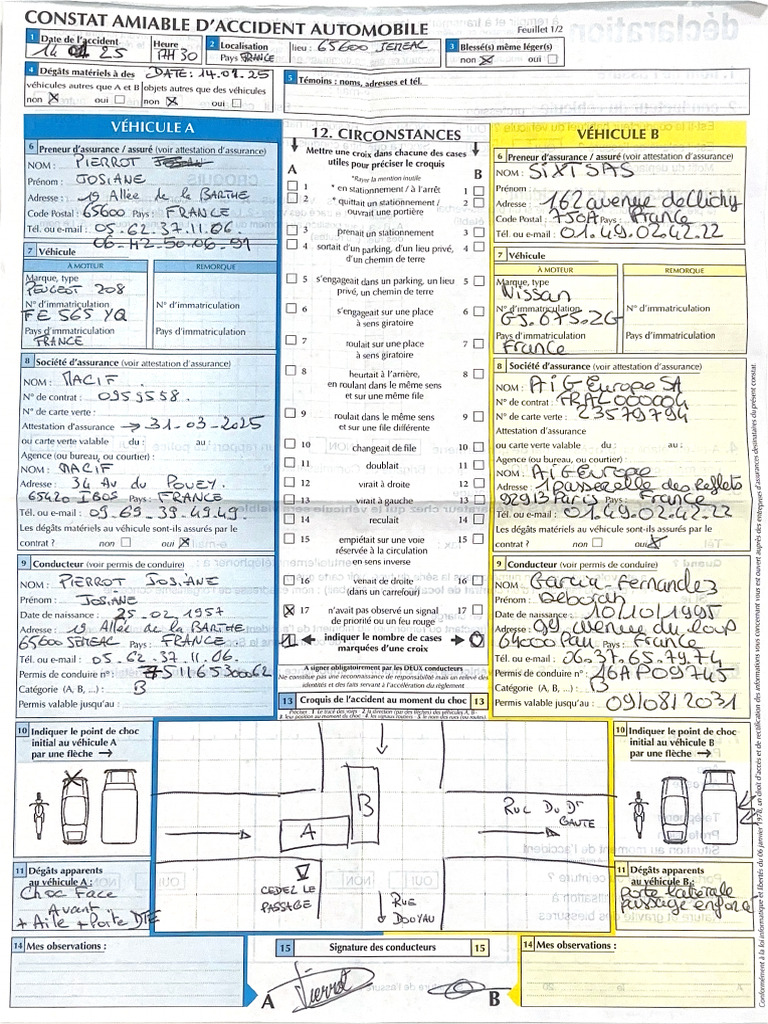 CONSTAT AMIABLE D'ACCIDENT AUTOMOBILE
Feuillet 1/2
1 Date de l'accident Heure
14 01 25 17H30
2 Localisation lieu : 65600 SEMEAC
Pays FRANCE
3 Blessé(s) même léger(s)
non X oui
4 Dégâts matériels à des DATE: 14.01.25
véhicules autres que A et B objets autres que des véhicules
non X oui non X oui
5 Témoins : noms, adresses et tél.
VÉHICULE A
6 Preneur d'assurance / assuré (voir attestation d'assurance)
NOM : PIERROT
Prénom : JOSIANE
Adresse : 19 Allée de la BARTHE
Code Postal : 65600 Pays : FRANCE
Tél. ou e-mail : 05.62.37.11.06.
06-42-50.06-91
7 Véhicule
À MOTEUR REMORQUE
Marque, type
PEUGEOT 208
N° d'immatriculation N° d'immatriculation
FE 565 YQ
Pays d'immatriculation Pays d'immatriculation
FRANCE
8 Société d'assurance (voir attestation d'assurance)
NOM : MACIF.
N° de contrat : 0959558.
N° de carte verte :
Attestation d'assurance → 31-03-2025
ou carte verte valable du : au :
Agence (ou bureau, ou courtier) :
NOM : MACIF
Adresse : 34 Av du POUEY.
65420 IBOS Pays : FRANCE
Tél. ou e-mail : 09-69-39-49.49.
Les dégâts matériels au véhicule sont-ils assurés par le
contrat ? non oui X
9 Conducteur (voir permis de conduire)
NOM : PIERROT JOSIANE
Prénom : JOSIANE
Date de naissance : 25-02-1957
Adresse : 19 Allée de la BARTHE
65600 SEMEAC Pays : FRANCE
Tél. ou e-mail : 05-62.37.11.06.
Permis de conduire n° : 751165300062
Catégorie (A, B, ...) : B
Permis valable jusqu'au :
12. CIRCONSTANCES
Mettre une croix dans chacune des cases
utiles pour préciser le croquis
A B
*Rayer la mention inutile
1 * en stationnement / à l'arrêt 1
2 * quittait un stationnement / 2
ouvrait une portière
3 prenait un stationnement 3
4 sortait d'un parking, d'un lieu privé, 4
d'un chemin de terre
5 s'engageait dans un parking, un lieu 5
privé, un chemin de terre
6 s'engageait sur une place 6
à sens giratoire
7 roulait sur une place 7
à sens giratoire
8 heurtait à l'arrière, 8
en roulant dans le même sens
et sur une même file
9 roulait dans le même sens 9
et sur une file différente
10 changeait de file 10
11 doublait 11
12 virait à droite 12
13 virait à gauche 13
14 reculait 14
15 empiétait sur une voie 15
réservée à la circulation
en sens inverse
16 venait de droite 16
(dans un carrefour)
X 17 n'avait pas observé un signal 17
de priorité ou un feu rouge
1 ← indiquer le nombre de cases → 0
marquées d'une croix
A signer obligatoirement par les DEUX conducteurs
Ne constitue pas une reconnaissance de responsabilité mais un relevé des
identités et des faits servant à l'accélération du règlement
VÉHICULE B
6 Preneur d'assurance / assuré (voir attestation d'assurance)
NOM : SIXT SAS
Prénom :
Adresse : 162 avenue de Clichy
Code Postal : Pays : France
Tél. ou e-mail : 01.49.02.42.22
7 Véhicule
À MOTEUR REMORQUE
Marque, type
Nissan
N° d'immatriculation N° d'immatriculation
GJ.675.ZG
Pays d'immatriculation Pays d'immatriculation
France
8 Société d'assurance (voir attestation d'assurance)
NOM : AiG Europe SA
N° de contrat : FRAL000004
N° de carte verte : 23579794
Attestation d'assurance
ou carte verte valable du : au :
Agence (ou bureau, ou courtier) :
NOM : AiG Europe
Adresse : 1 passerelle des Reflets
92913 Paris Pays : France
Tél. ou e-mail : 01.49.02.42.22
Les dégâts matériels au véhicule sont-ils assurés par le
contrat ? non oui X
9 Conducteur (voir permis de conduire)
NOM : Garcia-Fernandez
Prénom : Deborah
Date de naissance : 10/10/1995
Adresse : 99 avenue du loup
64000 Pau Pays : France
Tél. ou e-mail : 06.37.65.79.74
Permis de conduire n° : 16AP09745
Catégorie (A, B, ...) : B
Permis valable jusqu'au : 09/08/2031
13 Croquis de l'accident au moment du choc 13
Préciser : 1. Le tracé des voies 2. la direction (par des flèches) des véhicules A, B -
3. leur position au moment du choc 4. les signaux routiers 5. le nom des rues (ou routes)
10 Indiquer le point de choc
initial au véhicule A
par une flèche →
A
B
RUE DU DT
GAUTE
CEDEZ LE
PASSAGE
RUE
DOUYAU
10 Indiquer le point de choc
initial au véhicule B
par une flèche →
11 Dégâts apparents
au véhicule A :
Choc Face
Avant
+ Aile + Porte DTE
11 Dégâts apparents
au véhicule B :
porte latérale
passage enfoncé
14 Mes observations :
15 Signature des conducteurs 15
14 Mes observations :
A Pierrot B
Conformément à la loi informatique et libertés du 06 janvier 1978, un droit d'accès et de rectification des informations vous concernant vous est ouvert auprès des entreprises d'assurances destinataires du présent constat.